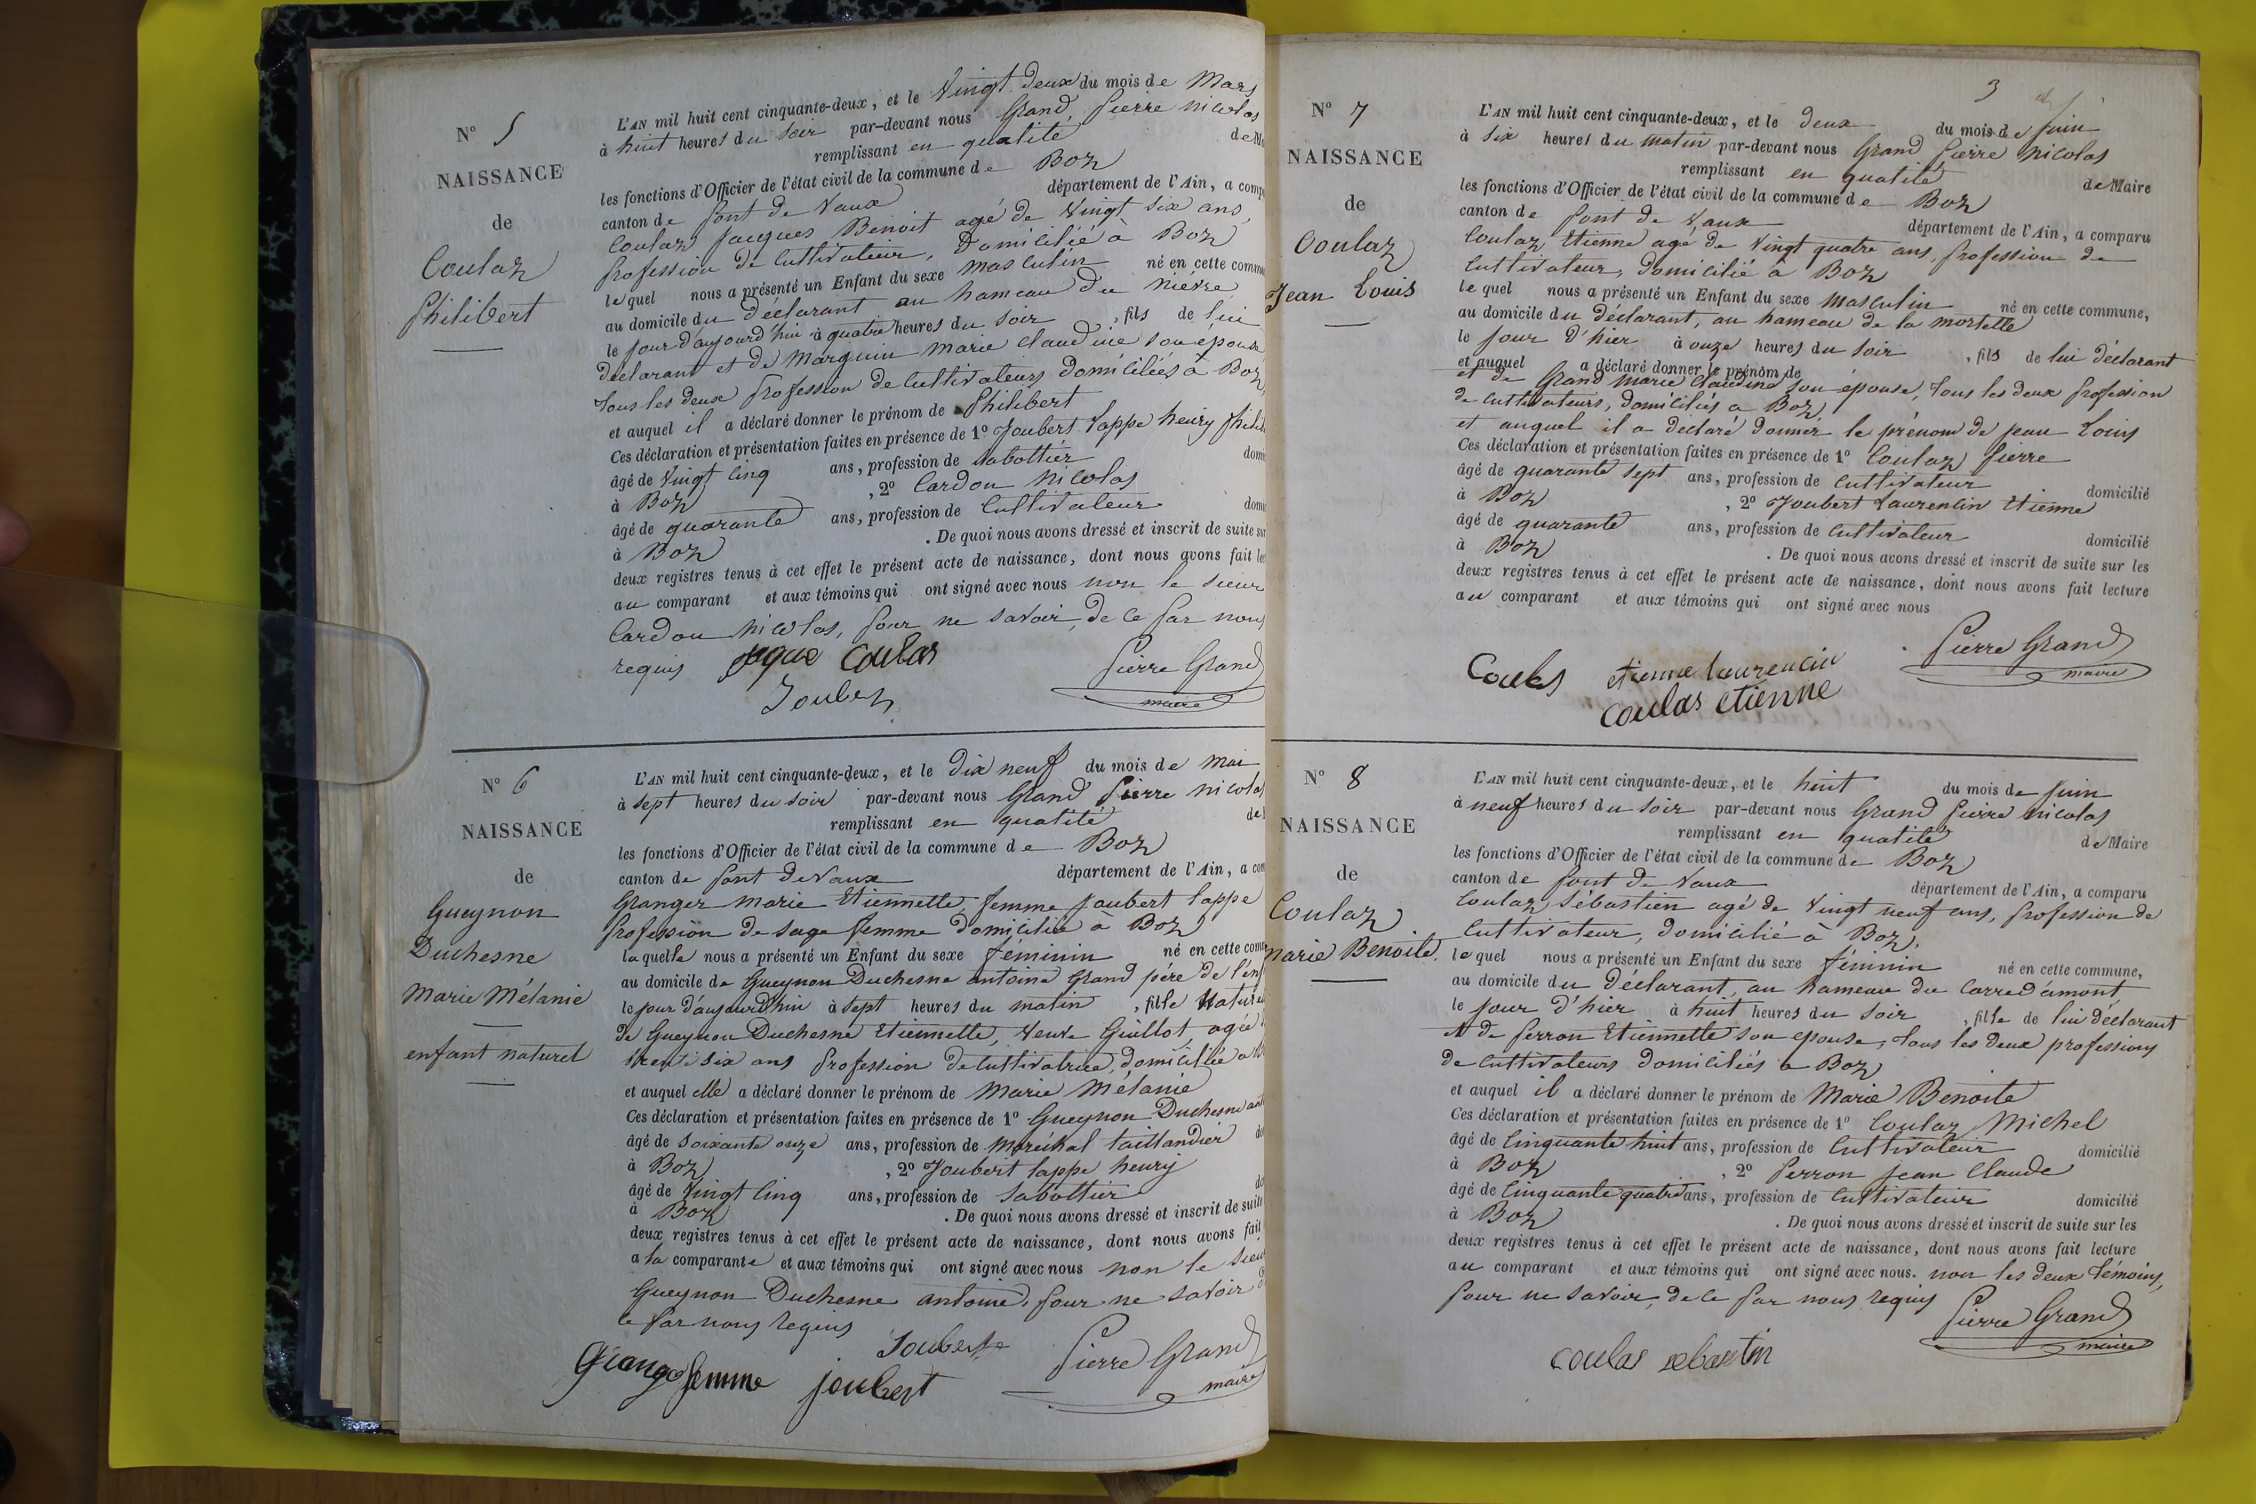 N° 5
NAISSANCE
de
Coulaz
Philibert
L'AN mil huit cent cinquante-deux, et le Vingt deux du mois de Mars
à huit heures du soir par-devant nous Grand Pierre nicolas
remplissant en qualité de
les fonctions d'Officier de l'état civil de la commune de Boz
canton de Pont de Vaux département de l'Ain, a comp
Coulaz Jacques Benoit agé de Vingt six ans,
Profession de Cultivateur, Domicilié à Boz
le quel nous a présenté un Enfant du sexe masculin né en cette commu
au domicile du déclarant au hameau du niévre
le jour d'aujourd'hui à quatre heures du soir , fils de lui
déclarant et de Marguin Marie Claudine son épouse
tous les deux Profession de Cultivateurs domiciliés à Boz
et auquel il a déclaré donner le prénom de Philibert
Ces déclaration et présentation faites en présence de 1° Joubert Lappe henry Phili
âgé de Vingt cinq ans, profession de Sabottier domi
à Boz , 2° Cardon Nicolas
âgé de quarante ans, profession de Cultivateur domi
à Boz . De quoi nous avons dressé et inscrit de suite sur
deux registres tenus à cet effet le présent acte de naissance, dont nous avons fait le
au comparant et aux témoins qui ont signé avec nous non le sieur
Cardon Nicolas, pour ne savoir, de ce par nous
requis jaque Coulas Pierre Grand
Joubert maire
N° 6
NAISSANCE
de
Gueynon
Duchesne
Marie Mélanie
enfant naturel
L'AN mil huit cent cinquante-deux, et le dix neuf du mois de mai
à sept heures du soir par-devant nous Grand Pierre nicolas
remplissant en qualité de
les fonctions d'Officier de l'état civil de la commune de Boz
canton de Pont de Vaux département de l'Ain, a com
Granger Marie Etiennette, femme Joubert Lappe
Profession de sage femme domiciliée à Boz
la quelle nous a présenté un Enfant du sexe féminin né en cette comm
au domicile de Gueynon Duchesne antoine Grand père de l'enf
le jour d'aujourd'hui à sept heures du matin , fille Nature
de Gueynon Duchesne Etiennette, Veuve Guillot, agée
trente six ans Profession de Cultivatrice, domiciliée à
et auquel elle a déclaré donner le prénom de Marie Mélanie
Ces déclaration et présentation faites en présence de 1° Gueynon Duchesne ant
âgé de soixante onze ans, profession de Maréchal taillandier do
à Boz , 2° Joubert Lappe henry
âgé de Vingt cinq ans, profession de Sabottier do
à Boz . De quoi nous avons dressé et inscrit de suite
deux registres tenus à cet effet le présent acte de naissance, dont nous avons fait
a la comparante et aux témoins qui ont signé avec nous non le sieur
Gueynon Duchesne antoine, pour ne savoir
ce par nous requis
Joubert Pierre Grand
femme joubert maire
3
N° 7
NAISSANCE
de
Coulaz
Jean Louis
L'AN mil huit cent cinquante-deux, et le deux du mois de Juin
à six heures du matin par-devant nous Grand Pierre nicolas
remplissant en qualité de Maire
les fonctions d'Officier de l'état civil de la commune de Boz
canton de Pont de Vaux département de l'Ain, a comparu
Coulaz Etienne agé de Vingt quatre ans, Profession de
Cultivateur, domicilié à Boz
le quel nous a présenté un Enfant du sexe masculin né en cette commune,
au domicile du déclarant, au hameau de la mortelle
le jour d'hier à onze heures du soir , fils de lui déclarant
et auquel a déclaré donner le prénom de
et de Grand Marie Claudine son épouse, tous les deux Profession
de Cultivateurs, domiciliés à Boz
et auquel il a déclaré donner le prénom de Jean Louis
Ces déclaration et présentation faites en présence de 1° Coulaz Pierre
âgé de quarante sept ans, profession de Cultivateur domicilié
à Boz , 2° Joubert Laurencin Etienne
âgé de quarante ans, profession de Cultivateur domicilié
à Boz . De quoi nous avons dressé et inscrit de suite sur les
deux registres tenus à cet effet le présent acte de naissance, dont nous avons fait lecture
au comparant et aux témoins qui ont signé avec nous
Pierre Grand
maire
Coulas etienne laurencin
Coulas etienne
N° 8
NAISSANCE
de
Coulaz
Marie Benoite.
L'AN mil huit cent cinquante-deux, et le huit du mois de Juin
à neuf heures du soir par-devant nous Grand Pierre nicolas
remplissant en qualité de Maire
les fonctions d'Officier de l'état civil de la commune de Boz
canton de Pont de Vaux département de l'Ain, a comparu
Coulaz Sébastien agé de Vingt neuf ans, Profession de
Cultivateur, domicilié à Boz.
le quel nous a présenté un Enfant du sexe féminin né en cette commune,
au domicile du déclarant, au hameau du Carre d'amont
le jour d'hier à huit heures du soir , fille de lui déclarant
et de Perron Etiennette son epouse, tous les deux professions
de Cultivateurs domiciliés à Boz
et auquel il a déclaré donner le prénom de Marie Benoite
Ces déclaration et présentation faites en présence de 1° Coulaz Michel
âgé de Cinquante huit ans, profession de Cultivateur domicilié
à Boz , 2° Perron Jean Claude
âgé de Cinquante quatre ans, profession de Cultivateur domicilié
à Boz . De quoi nous avons dressé et inscrit de suite sur les
deux registres tenus à cet effet le présent acte de naissance, dont nous avons fait lecture
au comparant et aux témoins qui ont signé avec nous. non les deux témoins,
pour ne savoir, de ce par nous requis Pierre Grand
maire
Coulas sebastin